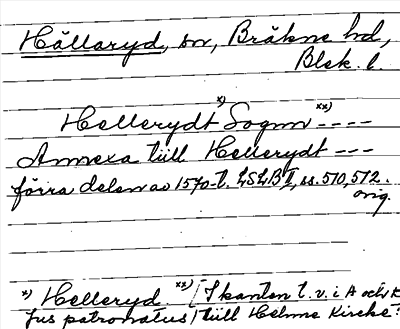 Hällaryd, sn, Bräkne hd,
Blek. l.
x) xx)
Hellerydt Sognn ----
Annexa tüll Hellerydt ---
förra delen av 1570-t. LSLB I, ss. 570, 572.
orig.
x) Helleryd. xx) [I kanten t. v. i A och K
Jus patronatus] tüll Helme Kircke?